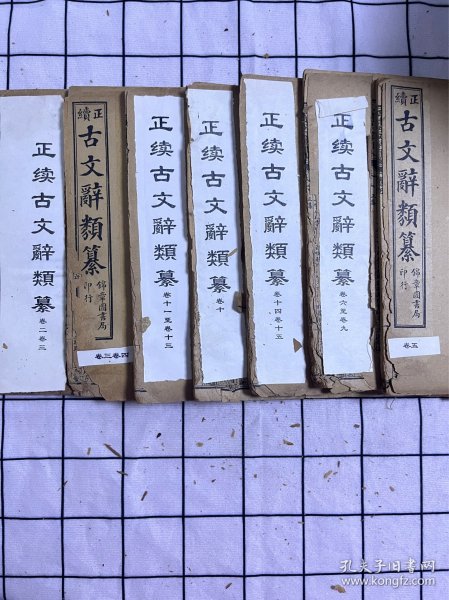 正续古文辞類纂
卷二卷三
正續
古文辭類纂
錦章圖書局
印行
卷三卷四
正续古文辞類纂
卷十一至卷十三
正续古文辞類纂
卷十
正续古文辞類纂
卷十四卷十五
正续古文辞類纂
卷六至卷九
正續
古文辭類纂
錦章圖書局
印行
卷五
孔夫子旧书网
www.kongfz.com